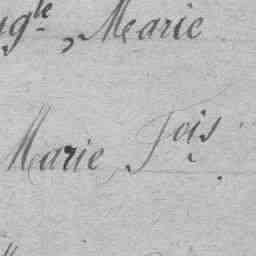 ugle, Marie
Marie Fois